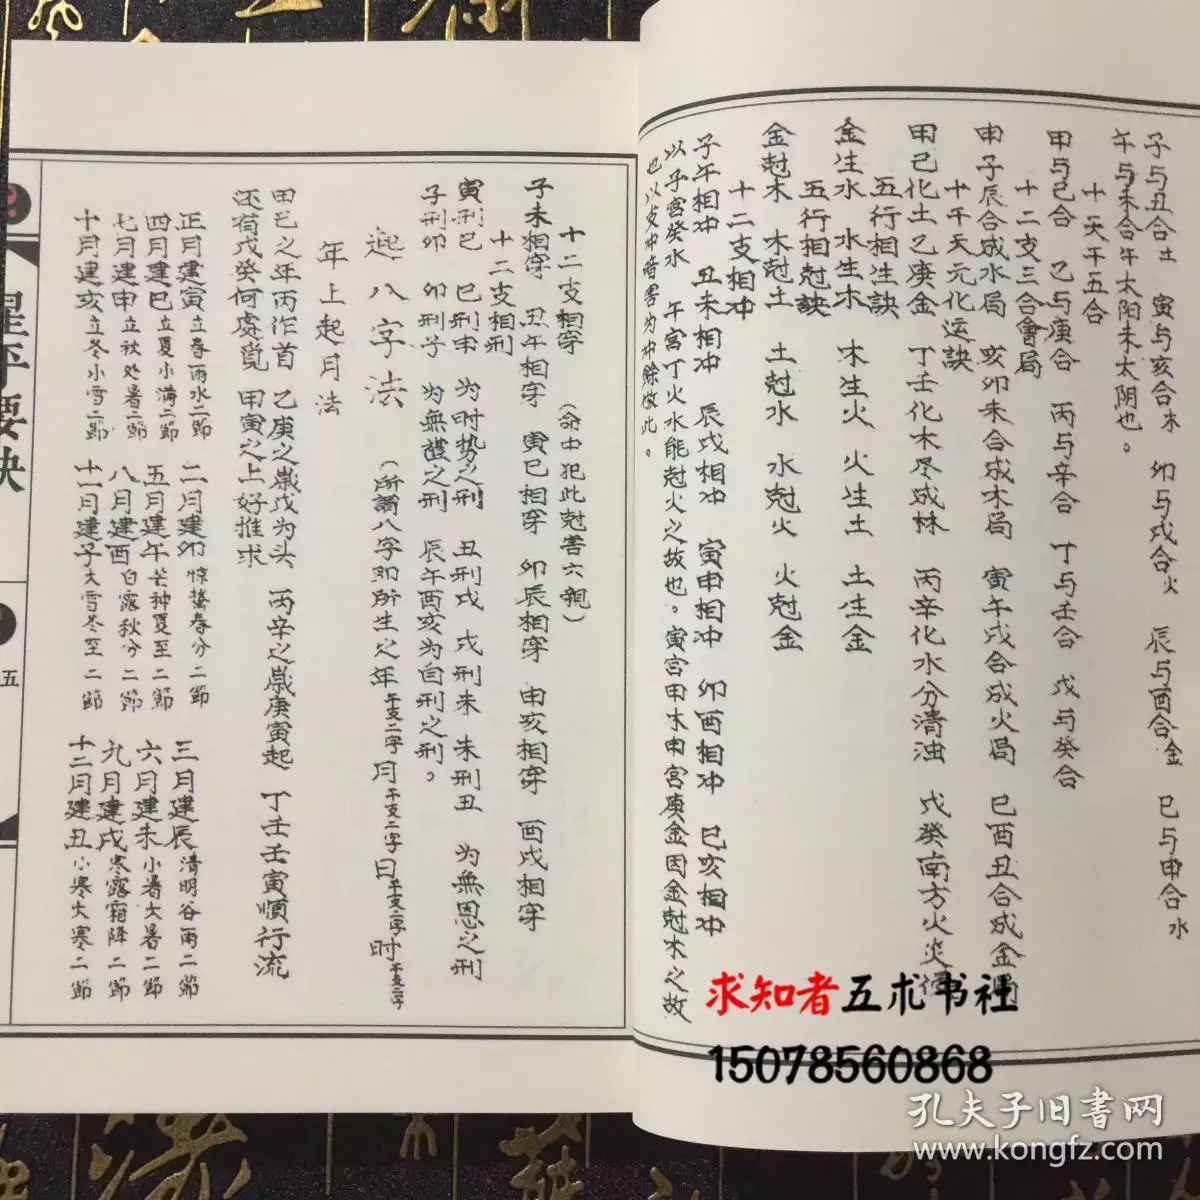 子与丑合土　寅与亥合木　卯与戌合火　辰与酉合金　巳与申合水
午与未合午太阳未太阴也。
十天干五合
甲与己合　乙与庚合　丙与辛合　丁与壬合　戊与癸合
十二支三合會局
申子辰合成水局　亥卯未合成木局　寅午戌合成火局　巳酉丑合成金局
十干天元化运訣
甲己化土乙庚金　丁壬化木尽成林　丙辛化水分清浊　戊癸南方火炎
五行相生訣
金生水　水生木　木生火　火生土　土生金
五行相尅訣
金尅木　木尅土　土尅水　水尅火　火尅金
十二支相冲
子午相冲　丑未相冲　辰戌相冲　寅申相冲　卯酉相冲　巳亥相冲
以子宮癸水　午宮丁火水能尅火之故也。寅宮甲木申宮庚金因金尅木之故
也以支中暗害为冲餘倣此。
十二支相穿　（命中犯此尅害六親）
子未相穿　丑午相穿　寅巳相穿　卯辰相穿　申亥相穿　酉戌相穿
十二支相刑
寅刑巳　巳刑申　为时势之刑　丑刑戌　戌刑未　未刑丑　为無恩之刑
子刑卯　卯刑子　为無禮之刑　辰午酉亥为自刑之刑。
起八字法　（所謂八字即所生之年干支二字月干支二字日干支二字时干支二字
年上起月法
甲己之年丙作首　乙庚之歲戊为头　丙辛之歲庚寅起　丁壬壬寅順行流
还有戊癸何處覓　甲寅之上好推求
正月建寅立春雨水二節　二月建卯惊蟄春分二節　三月建辰清明谷雨二節
四月建巳立夏小满二節　五月建午芒种夏至二節　六月建未小暑大暑二節
七月建申立秋处暑二節　八月建酉白露秋分二節　九月建戌寒露霜降二節
十月建亥立冬小雪二節　十一月建子大雪冬至二節　十二月建丑小寒大寒二節
星平要訣
五
求知者五术书社
15078560868
孔夫子旧書网
www.kongfz.com